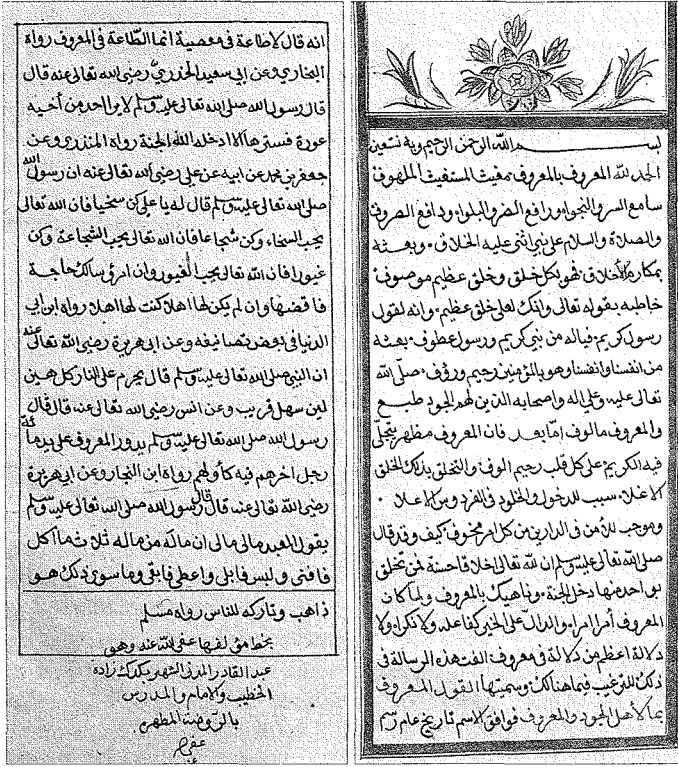 بسم الله الرحمن الرحيم وبه نستعين
الحمد لله المعروف بالمعروف مغيث المستغيث الملهوف
سامع السر والنجوا ورافع الضر والبلوا، ودافع الصروف
والصلاة والسلام على نبي اثنى عليه الخلاق، وبعثه
بمكارم الأخلاق فهو لكل خلق وخلق عظيم موصوف
خاطبه بقوله تعالى وانك لعلى خلق عظيم، وانه لقول
رسول كريم، فياله من نبي كريم ورسول عطوف، بعثه
من انفسنا وانفسنا وهو بالمؤمنين رحيم ورؤف، صلى الله
تعالى عليه وعلى اله واصحابه الذين لهم الجود طبع
والمعروف مالوف اما بعد فان المعروف مظهر يتجلى
فيه الكريم على كل قلب رحيم الوف والتخلق بذلك الخلق
الاغلا سبب للدخول والخلود في الفردوس الاعلا
وموجب للأمن في الدارين من كل امر مخوف كيف وقد قال
صلى الله تعالى عليه وسلم ان لله تعالى اخلاقا حسنة فمن تخلق
بواحد منها دخل الجنة، وناهيك بالمعروف ولما كان
المعروف أمرا امرا، والدال على الخير كفاعله ولا نكرا، ولا
دلالة اعظم من دلالة في معروف الفت هذه الرسالة في
ذلك للترغيب فيما هنالك وسميتها القول المعروف
بما لأهل الجود والمعروف فوافق الاسم تاريخ عام رسم
انه قال لا طاعة في معصية انما الطاعة في المعروف رواه
البخاري وعن ابي سعيد الخدري رضى الله تعالى عنه قال
قال رسول الله صلى الله تعالى عليه وسلم لا يرا احد من أخيه
عورة فسترها الا ادخله الله الجنة رواه المنذري وعن
جعفر بن محمد عن ابيه عن علي رضى الله تعالى عنه ان رسول الله
صلى الله تعالى عليه وسلم قال له يا علي كن سخيا فان الله تعالى
يحب السخاء وكن شجاعا فان الله تعالى يحب الشجاعة وكن
غيورا فان الله تعالى يحب الغيور وان امرؤ سالك حاجة
فاقضها وان لم يكن لها اهلا كنت لها اهلا رواه ابن ابي
الدنيا في بعض تصانيفه وعن ابي هريرة رضى الله تعالى عنه
ان النبي صلى الله تعالى عليه وسلم قال يحرم على النار كل هين
لين سهل قريب وعن انس رضى الله تعالى عنه قال قال
رسول الله صلى الله تعالى عليه وسلم يدور المعروف على يد مائة
رجل اخرهم فيه كأولهم رواه ابن النجار وعن ابي هريرة
رضى الله تعالى عنه قال قال رسول الله صلى الله تعالى عليه وسلم
يقول العبد مالى مالى ان ماله من ماله ثلاث ما اكل
فافنى ولبس فابلى واعطى فابقى وما سوى ذلك هو
ذاهب وتاركه للناس رواه مسلم
بخط مؤلفها عفى الله عنه وهو
عبد القادر المدني الشهير بكدك زاده
الخطيب والامام والمدرس
بالروضة المطهره
عفى